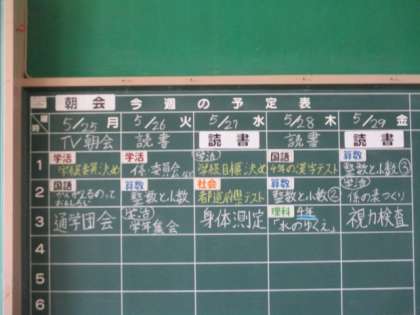 朝会 今週の予定表
曜 時 5/25 月 5/26 火 5/27 水 5/28 木 5/29 金
TV朝会 読書 読書 読書 読書
1 学活 学級委員決め 学活 係・委員会 学活 学級目標決め 国語 4年の漢字テスト 算数 整数と小数③
2 国語 算数 整数と小数 社会 都道府県テスト 算数 整数と小数② 学活 係の表づくり
3 通学団会 学活 学年集会 身体測定 理科 4年 「水のゆくえ」 視力検査
4
5
6